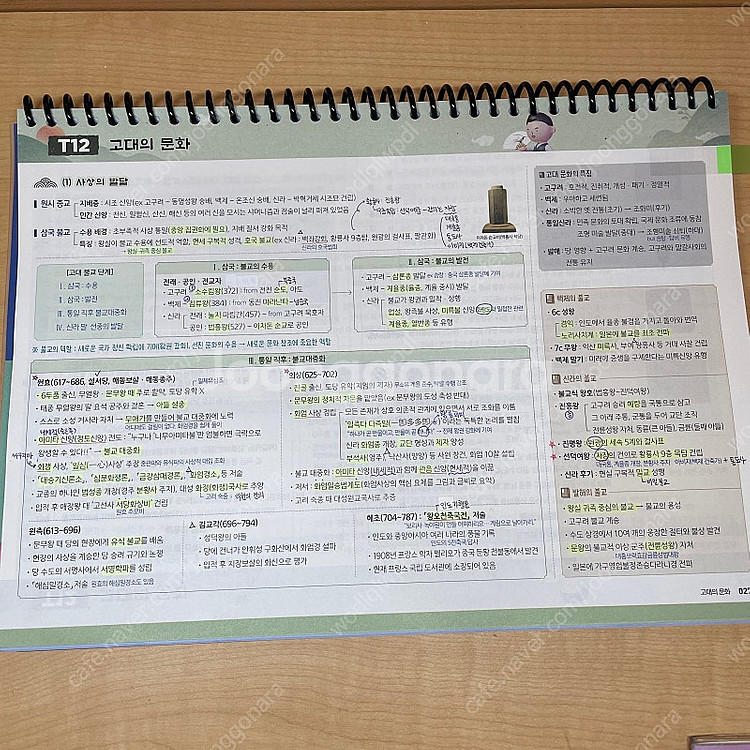 T12 고대의 문화
(1) 사상의 발달
원시 종교
지배층: 시조 신앙(ex 고구려 - 동명성왕 숭배, 백제 - 온조신 숭배, 신라 - 박혁거세 시조묘 건립)
민간 신앙: 천신, 일월신, 산신, 해신 등의 여러 신을 모시는 샤머니즘과 점술이 널리 퍼져 있었음
삼국 불교
수용 배경: 초부족적 사상 통일(중앙 집권화에 필요), 지배 질서 강화 목적
특징: 왕실이 불교 수용에 선도적 역할, 현세 구복적 성격, 호국 불교(ex 신라 - 백좌강회, 황룡사 9층탑, 원광의 걸사표, 팔관회)
왕실 귀족 중심 불교
[고대 불교 단계]
Ⅰ. 삼국 : 수용
Ⅱ. 삼국 : 발전
Ⅲ. 통일 직후 불교대중화
Ⅳ. 신라 말 선종의 발달
Ⅰ. 삼국 : 불교의 수용
전래·공인·전교자
· 고구려: 소수림왕(372) : from 전진 순도, 아도
· 백제: 침류왕(384) : from 동진 마라난타
· 신라: 전래: 눌지 마립간(457) - from 고구려 묵호자
공인: 법흥왕(527) - 이차돈 순교로 공인
Ⅱ. 삼국 : 불교의 발전
· 고구려 - 삼론종 발달
· 백제 - 계율종(율종, 계율 중시) 발달
· 신라 - 불교가 왕권과 밀착·성행
업설, 왕즉불 사상, 미륵불 신앙
계율종, 열반종 등 유행
Ⅲ. 통일 직후: 불교대중화
원효(617~686, 설서당, 해동보살·해동종주)
· 6두품 출신, 무열왕·문무왕 때 주로 활약, 도당 유학 X
· 태종 무열왕의 딸 요석 공주와 결혼 → 아들 설총
· 스스로 소성 거사라 자처 → 무애가를 만들어 불교 대중화에 노력
· 아미타 신앙(정토신앙) 전도: "누구나 '나무아미타불'만 염불하면 극락으로
왕생할 수 있다!" → 불교 대중화
· 화쟁 사상, '일심(一心)사상' 주장
· 「대승기신론소」, 「십문화쟁론」, 「금강삼매경론」, 「화엄경소」 등 저술
· 교종의 하나인 법성종 개창(경주 분황사 주지), 대성 화정(화쟁)국사로 추앙
· 입적 후 애장왕 때 「고선사 서당화상비」 건립
의상(625~702)
· 진골 출신, 도당 유학(지엄의 제자)
· 문무왕의 정치적 자문을 맡았음(ex 문무왕의 도성 축성 반대)
· 화엄 사상 정립
모든 존재가 상호 의존적 관계에 있으면서 서로 조화를 이룸
신라 화엄종 개창, 교단 형성과 제자 양성
부석사(영주), 낙산사(양양) 등 사원 창건, 화엄 10찰 설립
· 불교 대중화: 아미타 신앙(내세적)과 함께 관음 신앙(현세적)을 이끎
· 저서: 화엄일승법계도(화엄사상의 핵심 요체를 그림과 글씨로 요약)
· 고려 숙종 때 대성원교국사로 추증
원측(613~696)
· 문무왕 때 당의 현장에게 유식 불교를 배움
· 현장의 사상을 계승한 당 승려 규기와 논쟁
· 당 수도의 서명사에서 서명학파를 성립
· 「해심밀경소」 저술
김교각(696~794)
· 성덕왕의 아들
· 당에 건너가 안휘성 구화산에서 화엄경 설파
· 입적 후 지장보살의 화신으로 평가
혜초(704~787) : 「왕오천축국전」 저술
· 인도와 중앙아시아 여러 나라의 풍물 기록
· 1908년 프랑스 학자 펠리오가 중국 둔황 천불동에서 발견
· 현재 프랑스 국립 도서관에 소장되어 있음
고대 문화의 특징
· 고구려: 호전적, 진취적, 개성·패기·정열적
· 백제: 우아하고 세련됨
· 신라: 소박한 옛 전통(초기) → 조화미(후기)
· 통일신라: 민족 문화의 토대 확립, 국제 문화 조류에 동참
조형 미술 발달(중대) → 조형미술 쇠퇴(하대)
· 발해: 당 영향 + 고구려 문화 계승, 고구려와 말갈사회의
전통 유지
백제의 불교
· 6c 성왕
겸익: 인도에서 율종 불경을 가지고 돌아와 번역
노리사치계: 일본에 불교를 최초 전파
· 7c 무왕: 익산 미륵사, 부여 왕흥사 등 거대 사찰 건립
· 백제 말기: 미래에 중생을 구제한다는 미륵신앙 유행
신라의 불교
· 불교식 왕명(법흥왕~진덕여왕)
· 진흥왕
고구려 승려 혜량을 국통으로 삼고
그 아래 주통, 군통을 두어 교단 조직
전륜성왕 자처, 동륜(큰 아들), 금륜(둘째 아들)
· 진평왕: 원광의 세속 5계와 걸사표
· 선덕여왕: 자장의 건의로 황룡사 9층 목탑 건립
· 신라 후기: 현실 구복적 밀교 성행
발해의 불교
· 왕실 귀족 중심의 불교 → 불교의 융성
· 고구려 불교 계승
· 수도 상경에서 10여 개의 웅장한 절터와 불상 발견
· 문왕의 불교적 이상 군주(전륜성왕) 자처
고대의 문화 027